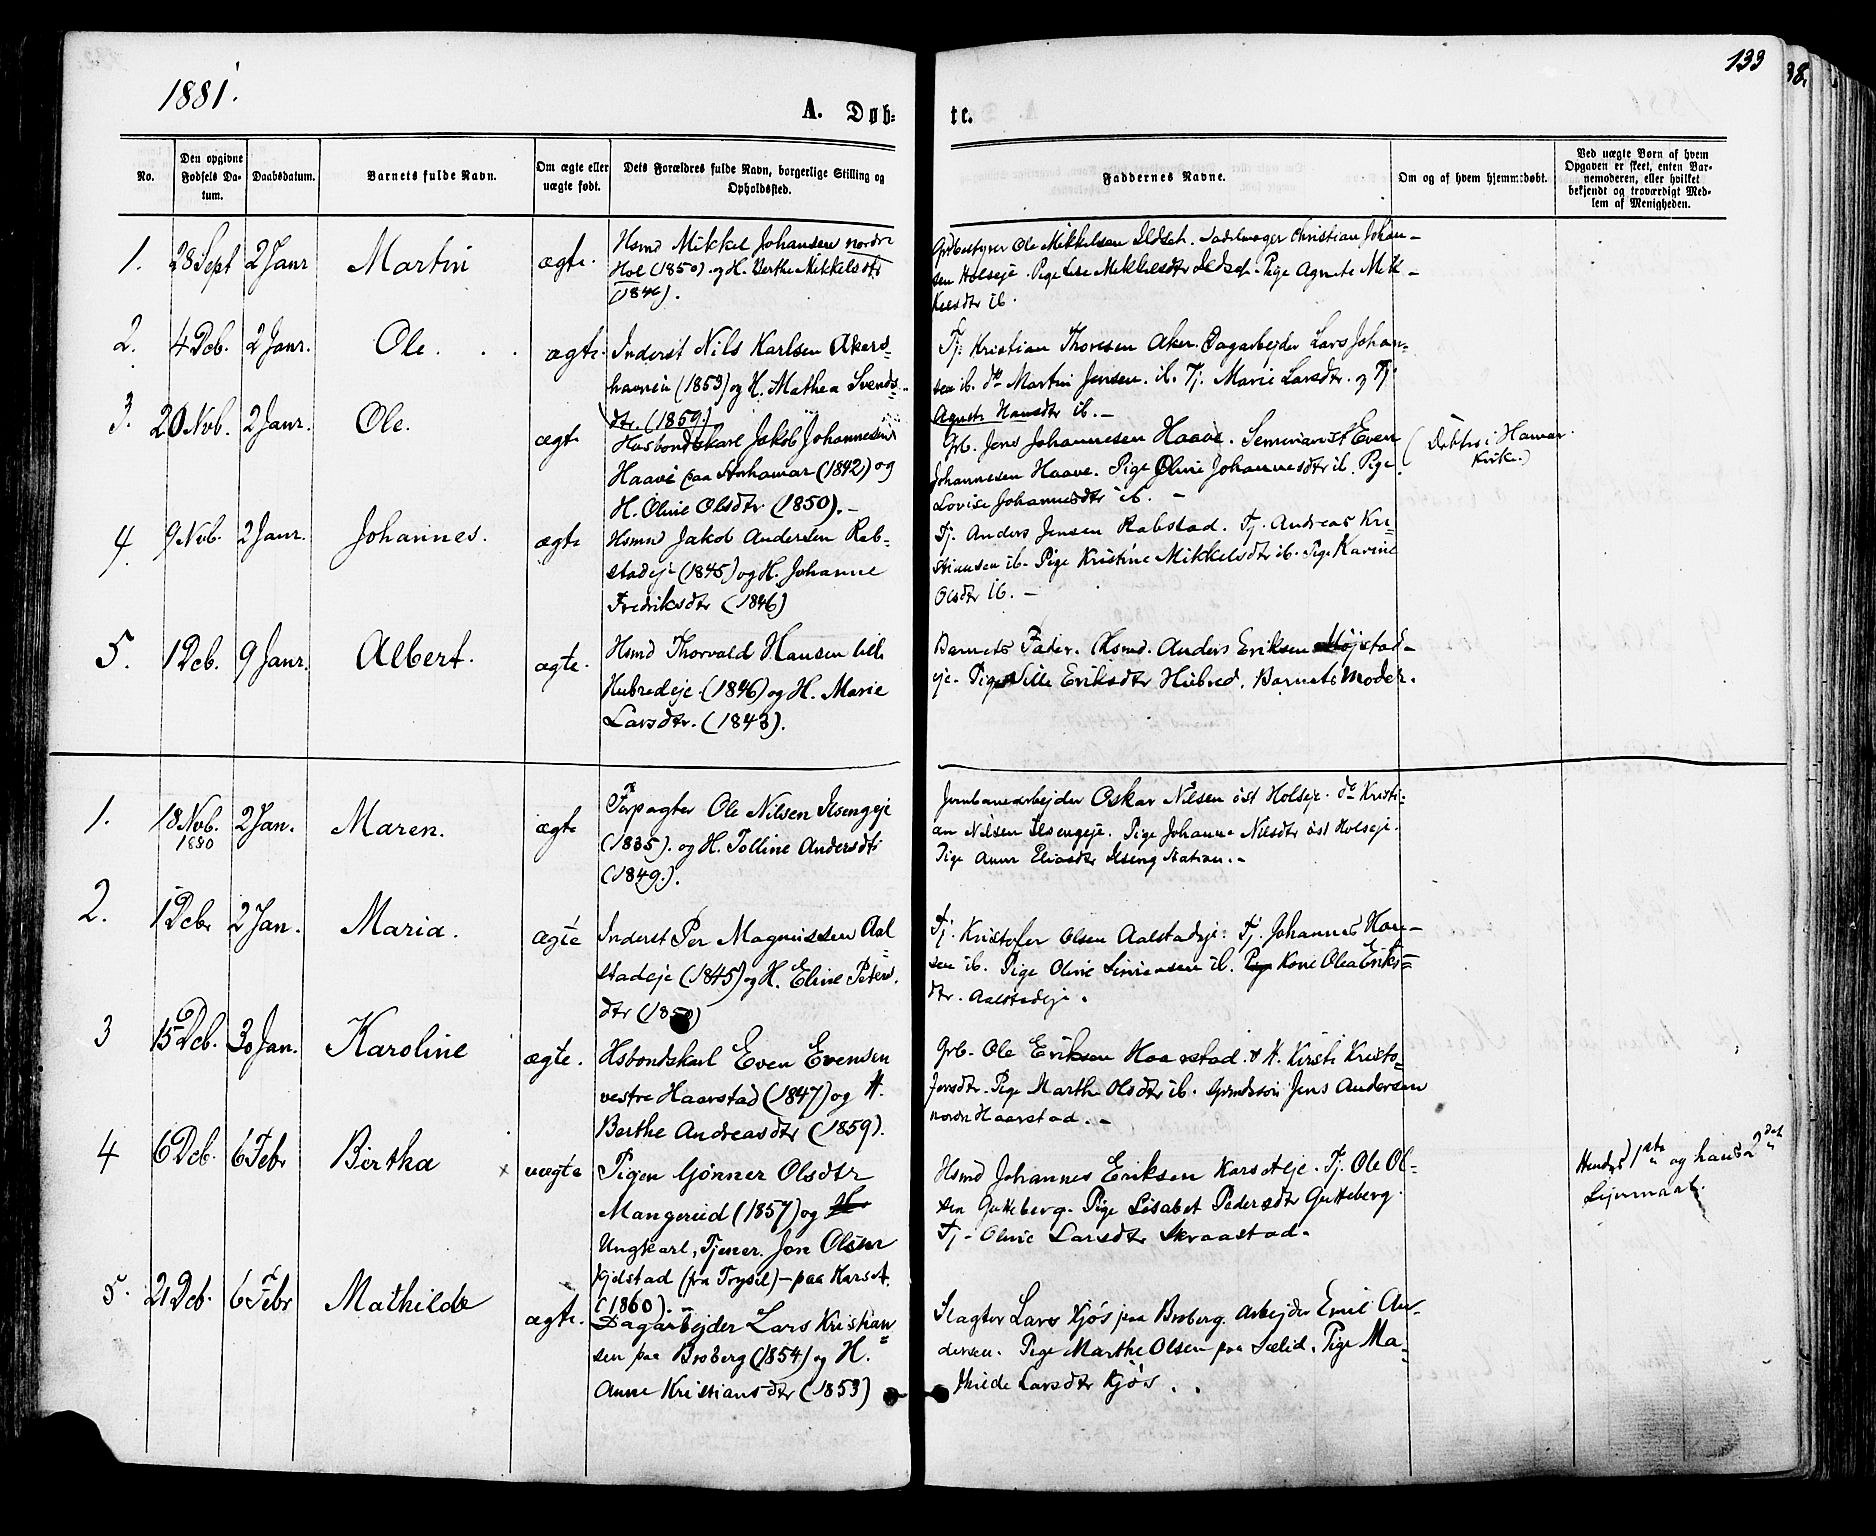 1881.
133
A. Døb-
te.
No.
Den opgivne Fødsels Datum.
Daabsdatum.
Barnets fulde Navn.
Om ægte eller uægte født.
Dets Forældres fulde Navn, borgerlige Stilling og Opholdssted.
Faddernes Navne.
Om og af hvem hjemmedøbt.
Ved uægte Børn af hvem Opgaven er skeet, enten Barnemoderen, eller hvilket bekjendt og troværdigt Medlem af Menigheden.
1. 28 Sept 2 Janr Martin ægte.
Hsmd Mikkel Johansen nordre
Hol (1850) og H. Berthe Mikkelsdtr
(1846).
Ole Mikkelsen Ildset. Sadelmager Christian Johan-
sen Holseje. Pige Lise Mikkelsdtr Ildset. Pige Agnete Mik-
kelsdtr ib.
2. 4 Deb. 2 Janr. Ole. ægte.
Inderst Nils Karlsen Akers-
havnein (1853) og H. Mathea Svends-
dtr. (1859.)
Tj. Kristian Thoresen Aker. Dagarbejder Lars Johan-
sen ib. do Martin Jensen. ib. Tj. Marie Larsdtr. og Tj
Agnete Hansdtr ib. -
3. 20 Nvb. 2 Janr. Ole. ægte
Husbondskarl Jakob Johannesen
Haave paa Storhamar (1842) og
H. Oline Olsdtr (1850). -
Grb. Jens Johannesen Haave. Seminarist Even
Johannesen Haave. Pige Oline Johannesdtr ib. Pige
Lovise Johannesdtr ib. -
( Døbtes i Hamar
Kirke.)
4. 9 Nvb. 2 Janr. Johannes. ægte
Hsmd Jakob Andersen Rab-
stadeje (1845) og H. Johanne
Fredriksdtr (1846)
Tj. Anders Jensen Rabstad. Tj. Andreas Kri-
stiansen ib. Pige Kristine Mikkelsdtr ib. Pige Karine
Olsdtr ib. -
5. 1 Deb. 9 Janr. Albert. ægte.
Hsmd Thorvald Hansen lille
Hubredeje. (1846) og H. Marie
Larsdtr. (1843).
Barnets Fader. Hsmd. Anders Eriksen
eje. Pige Nille Eriksdtr Hubred. Barnets Moder.
1. 18 Nvb. 1880 2 Jan. Maren. ægte
Forpagter Ole Nilsen Ilsengeje
(1835). og H. Tolline Andersdtr
(1849.).
Jernbanearbejder Oskar Nilsen øst Holseje. do Kristi-
an Nilsen Ilsengeje. Pige Johanne Nilsdtr øst Holseje.
Pige Anne Eliasdtr Ilseng Station. -
2. 1 Debr 2 Jan. Maria. ægte
Inderst Per Magnussen Aal
stadeje (1845) og H. Eline Peters.
dtr (1850)
Tj. Kristofer Olsen Aalstadeje. Tj. Johannes Han-
sen ib. Pige Oline Simensen ib. Pige Kone Olea Eriks-
dtr. Aalstadeje.
3 15 Deb. 30 Jan. Karoline ægte.
Hsbondskarl Even Evensen
vestre Haarstad (1847) og H.
Berthe Andreasdtr (1859).
Grb. Ole Eriksen Haarstad. & H. Kirsti Kristo-
fersdtr. Pige Marthe Olsdtr ib. Grmdsøn Jens Andersen
nordre Haarstad. -
4 6 Deb. 6 Febr Birtha x uægte
Pigen Gønner Olsdtr
Mangerud (1857) og H
Ungkarl, Tjener. Jon Olsen
Jydstad (fra Trysil) - paa Karset.
(1860).
Hsmd Johannes Eriksen Karseteje. Tj. Ole Ol-
sen Gutteberg. Pige Lisabet Pedersdtr Gutteberg.
Tj. Oline Larsdtr Skraastad.
Hendes 1ste og hans 2det
Lejermaal.
5. 21 Deb. 6 Febr Mathilde ægte.
Dagarbejder Lars Kristian
sen paa Broberg (1854) og H.
Anne Kristiansdtr (1853)
Slagter Lars Kjøs paa Broberg. Arbejder Emil An-
dersen. Pige Marthe Olsen paa Sælid. Pige Ma-
thilde Larsdtr Kjøs.